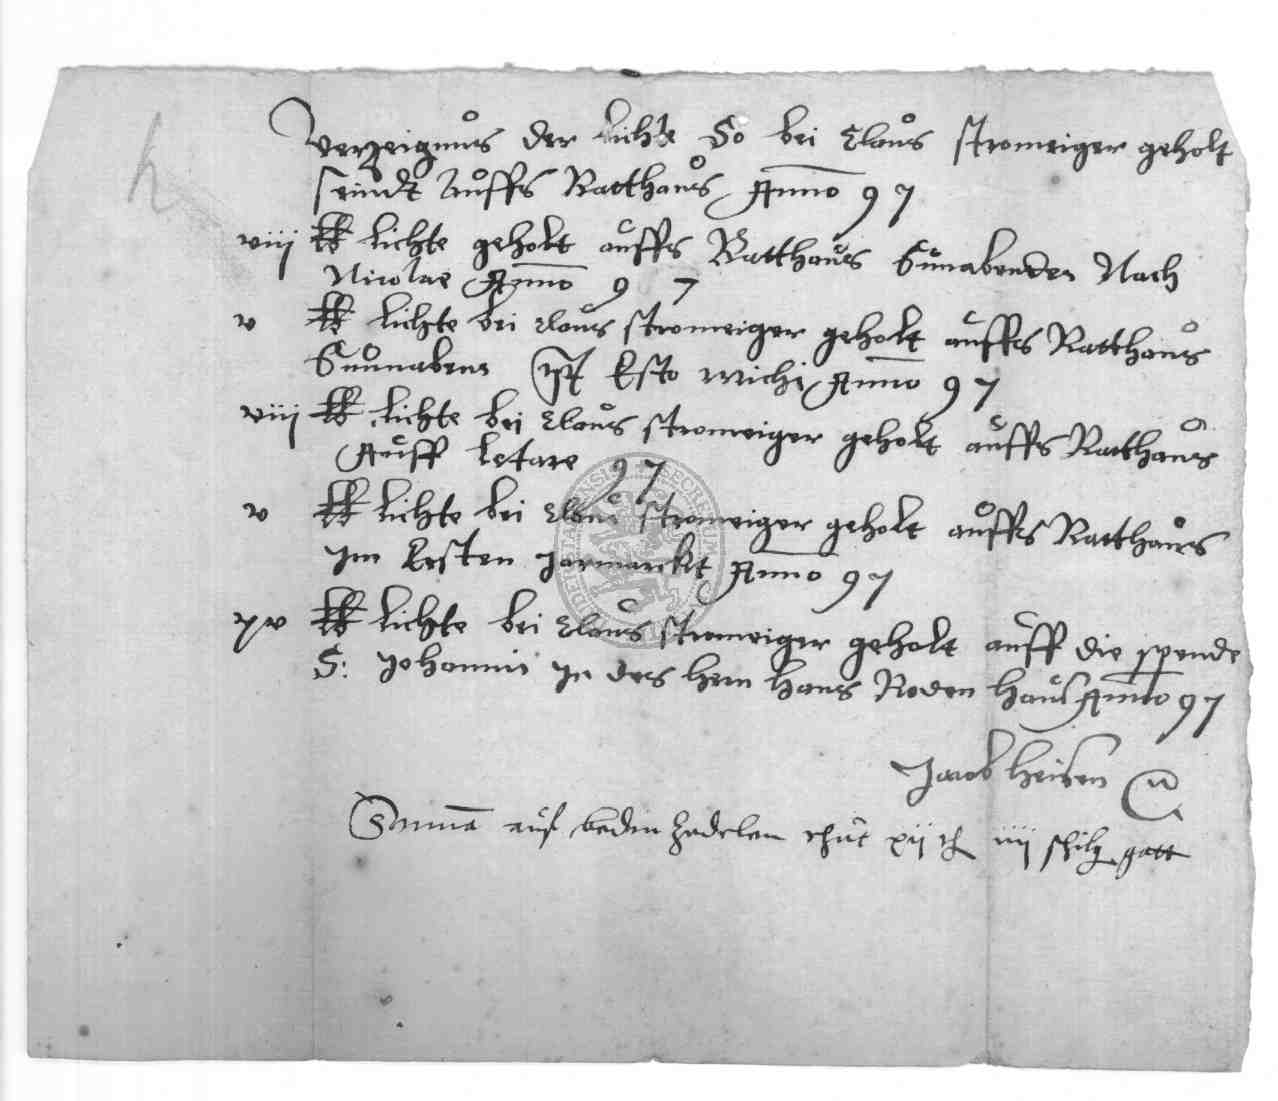 h
Verzeignus der lichte So bei Claus stromeiger geholt
seindt auffs Ratthaus Anno 97
viii ℔ lichte geholt auffs Ratthaus Sunabenden Nach
Nicolae Anno 97
v ℔ lichte bei Claus stromeiger geholt auffs Ratthaus
Sunnabens Esto michi Anno 97
viii ℔ lichte bei Claus stromeiger geholt auffs Ratthaus
Auff letare 97
v ℔ lichte bei Claus stromeiger geholt auffs Ratthaus
Im Ersten Jarmarckt Anno 97
xv ℔ lichte bei Claus stromeiger geholt auff die spende
S: Johannis In des hern hans Roden haus Anno 97
Jacob heisen
Summa auf beden zedelen thut xij iiij schilg